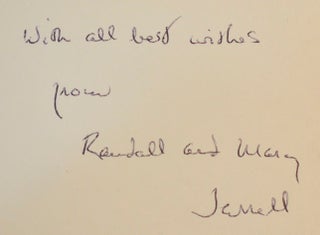 With all best wishes
from
Randall and Mary
Jarrell